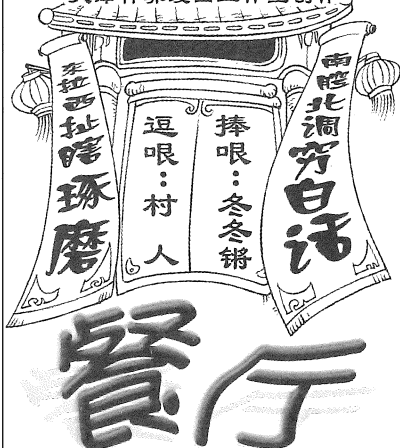 南腔北调穷白话
捧哏：冬冬锵
逗哏：村人
东拉西扯瞎琢磨
餐厅